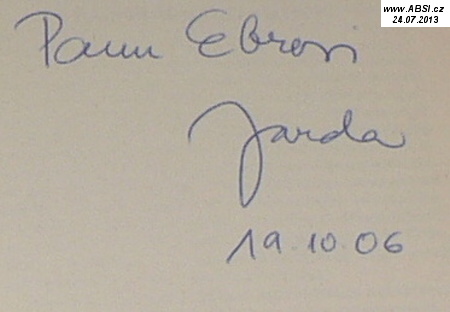 www.ABSI.cz
24.07.2013
Panu Ebrovi
Jarda
19.10.06